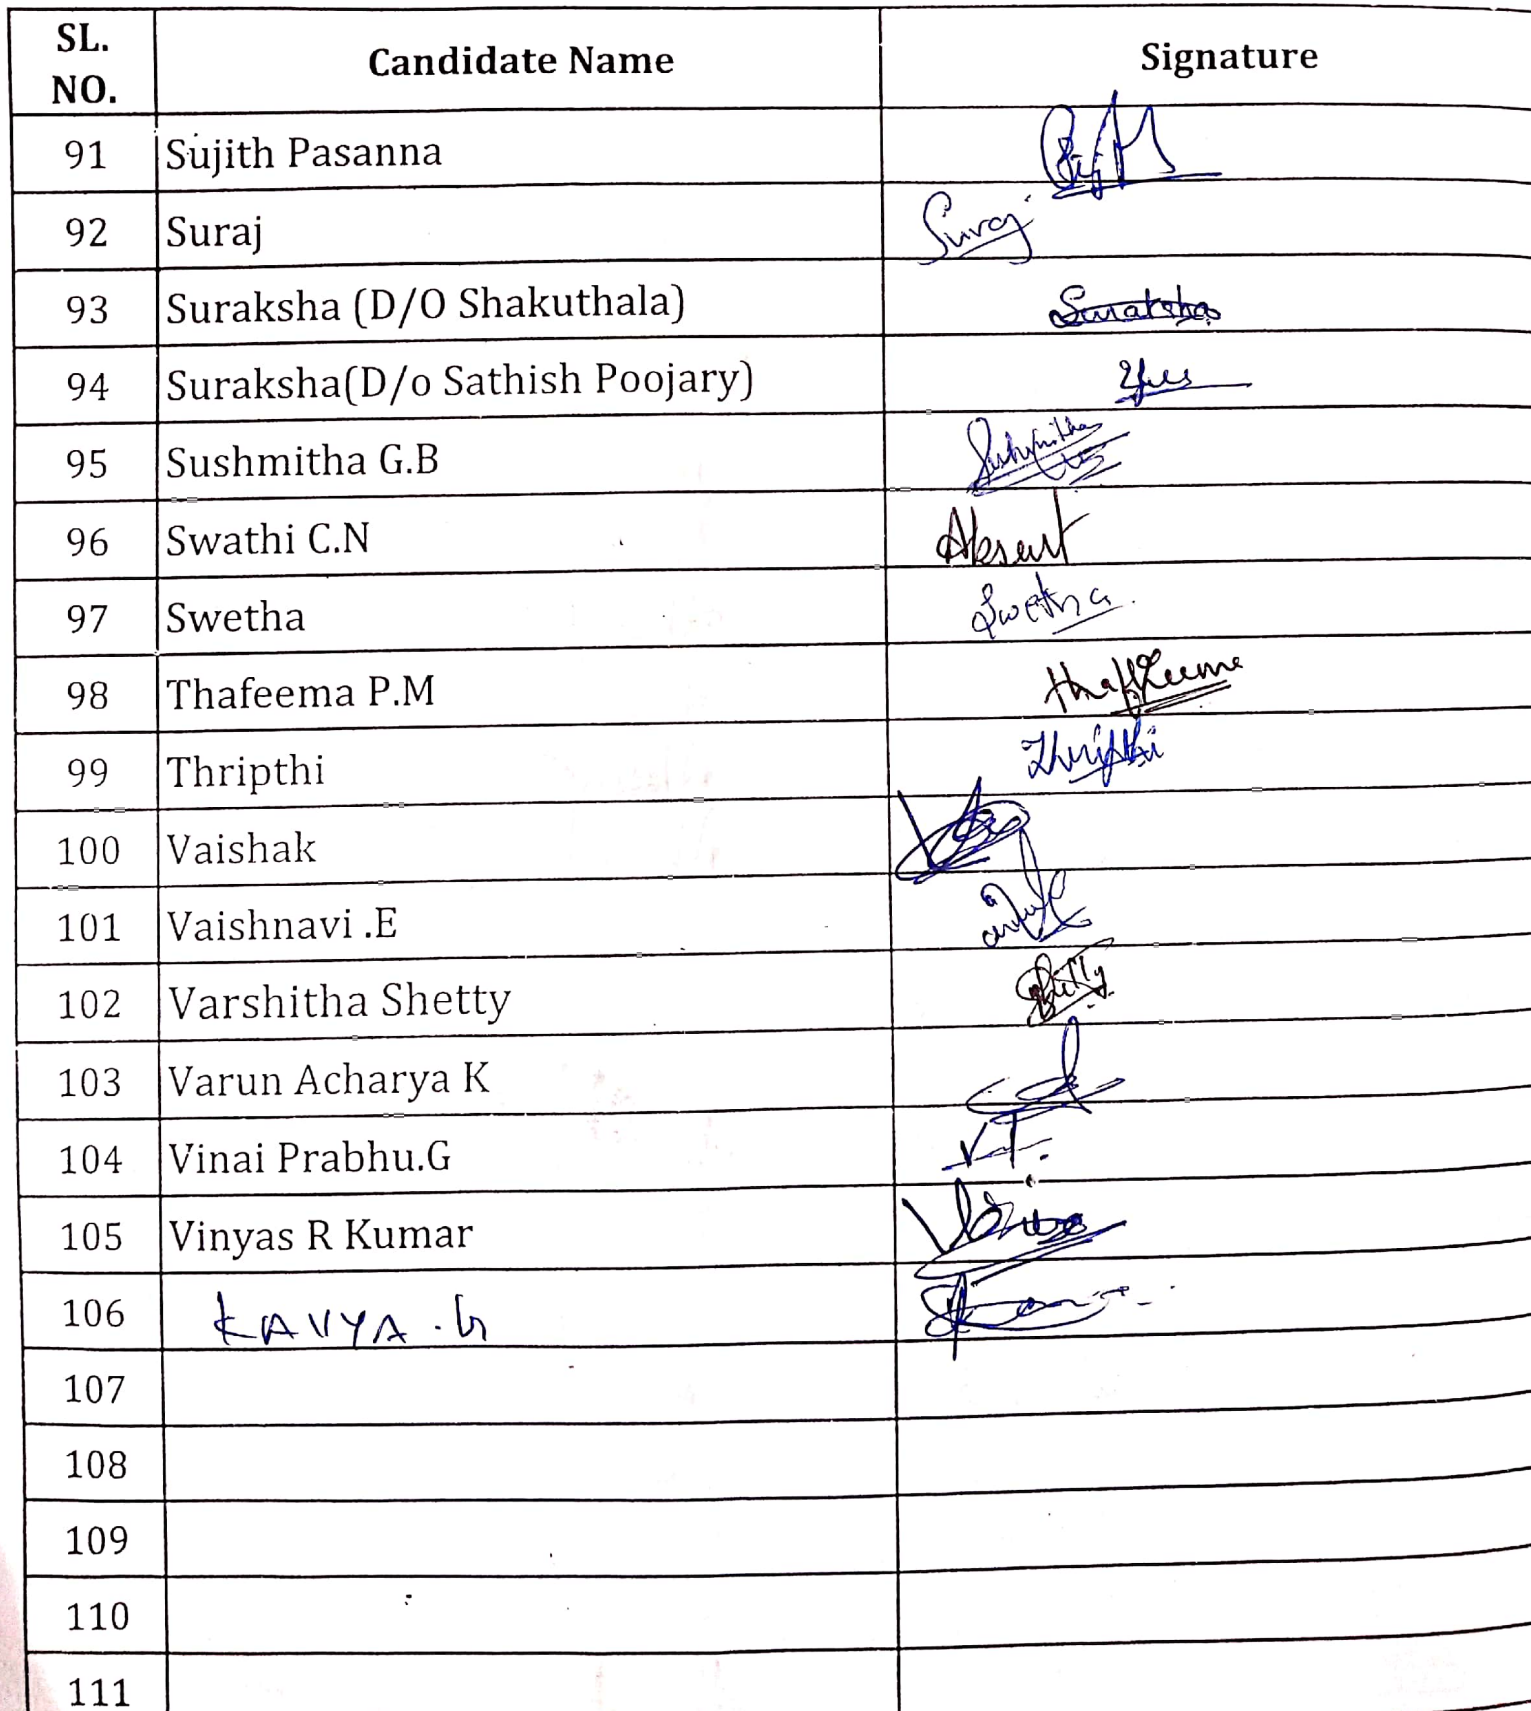 SL. NO. Candidate Name Signature
91 Sujith Pasanna
92 Suraj Suraj
93 Suraksha (D/O Shakuthala) Suraksha
94 Suraksha(D/o Sathish Poojary)
95 Sushmitha G.B Sushmitha
96 Swathi C.N Absent
97 Swetha Swetha.
98 Thafeema P.M thaffeema
99 Thripthi Thripthi
100 Vaishak
101 Vaishnavi .E
102 Varshitha Shetty Shetty
103 Varun Acharya K
104 Vinai Prabhu.G
105 Vinyas R Kumar
106 KAVYA .G
107
108
109
110
111